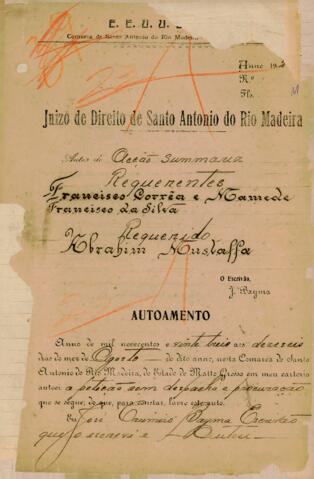 E. E. U. U.
Comarca de Santo Antonio do Rio Madeira
Anno 19
N.º
Fls.
Juizo de Direito de Santo Antonio do Rio Madeira
Autos de Acção Summaria
Requerentes
Francisco Corrêa e Mamede
Francisco da Silva
Requerido
Abrahim Mustaffa
O Escrivão,
J. Dayma
AUTOAMENTO
Anno de mil novecentos e vinte tres aos dezeseis
dias do mez de Agosto do dito anno, nesta Comarca de Santo
Antonio do Rio Madeira, do Estado de Matto Grosso em meu cartorio
autoei a petição com despacho e procuração
que se segue, do que, para constar, lavrei este auto.
Eu José Dayma Escrivão
que o escrevi e